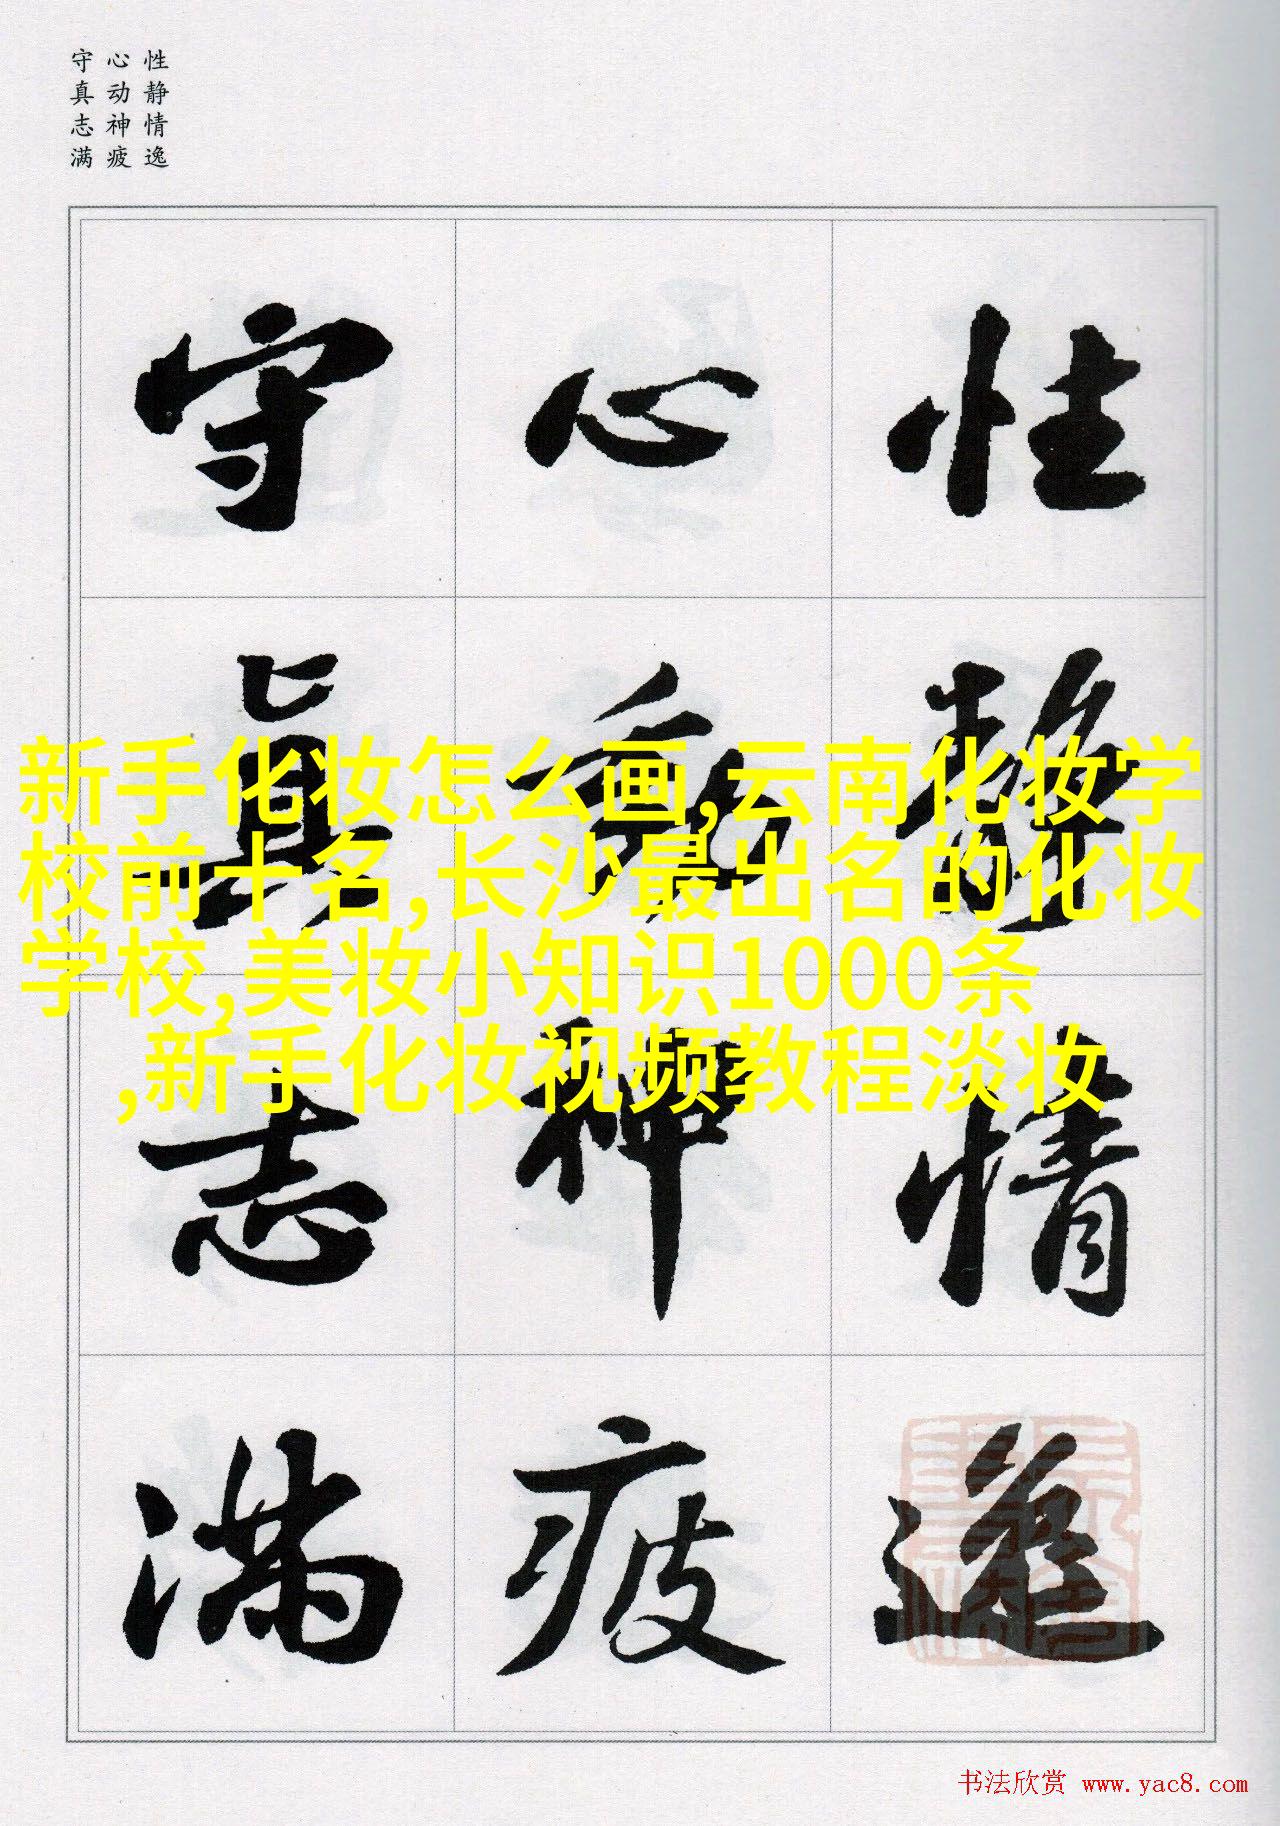 性静情逸
心动神疲
守真志满
性静情逸
心动神疲
守真志满
新手化妆怎么画,云南化妆学
校前十名,长沙最出名的化妆
学校,美妆小知识1000条
,新手化妆视频教程淡妆
书法欣赏 www.yac8.com